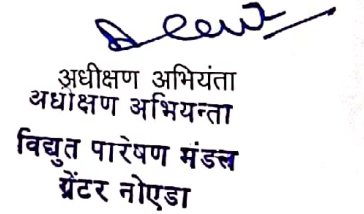 अधीक्षण अभियंता
अधीक्षण अभियन्ता
विद्युत पारेषण मंडल
ग्रेटर नोएडा